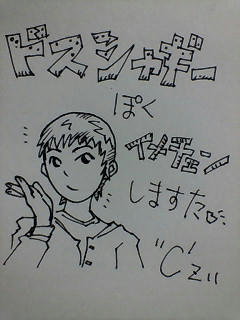 ドスジャギー
ぽく
イメチェン
しますた
"C'z"